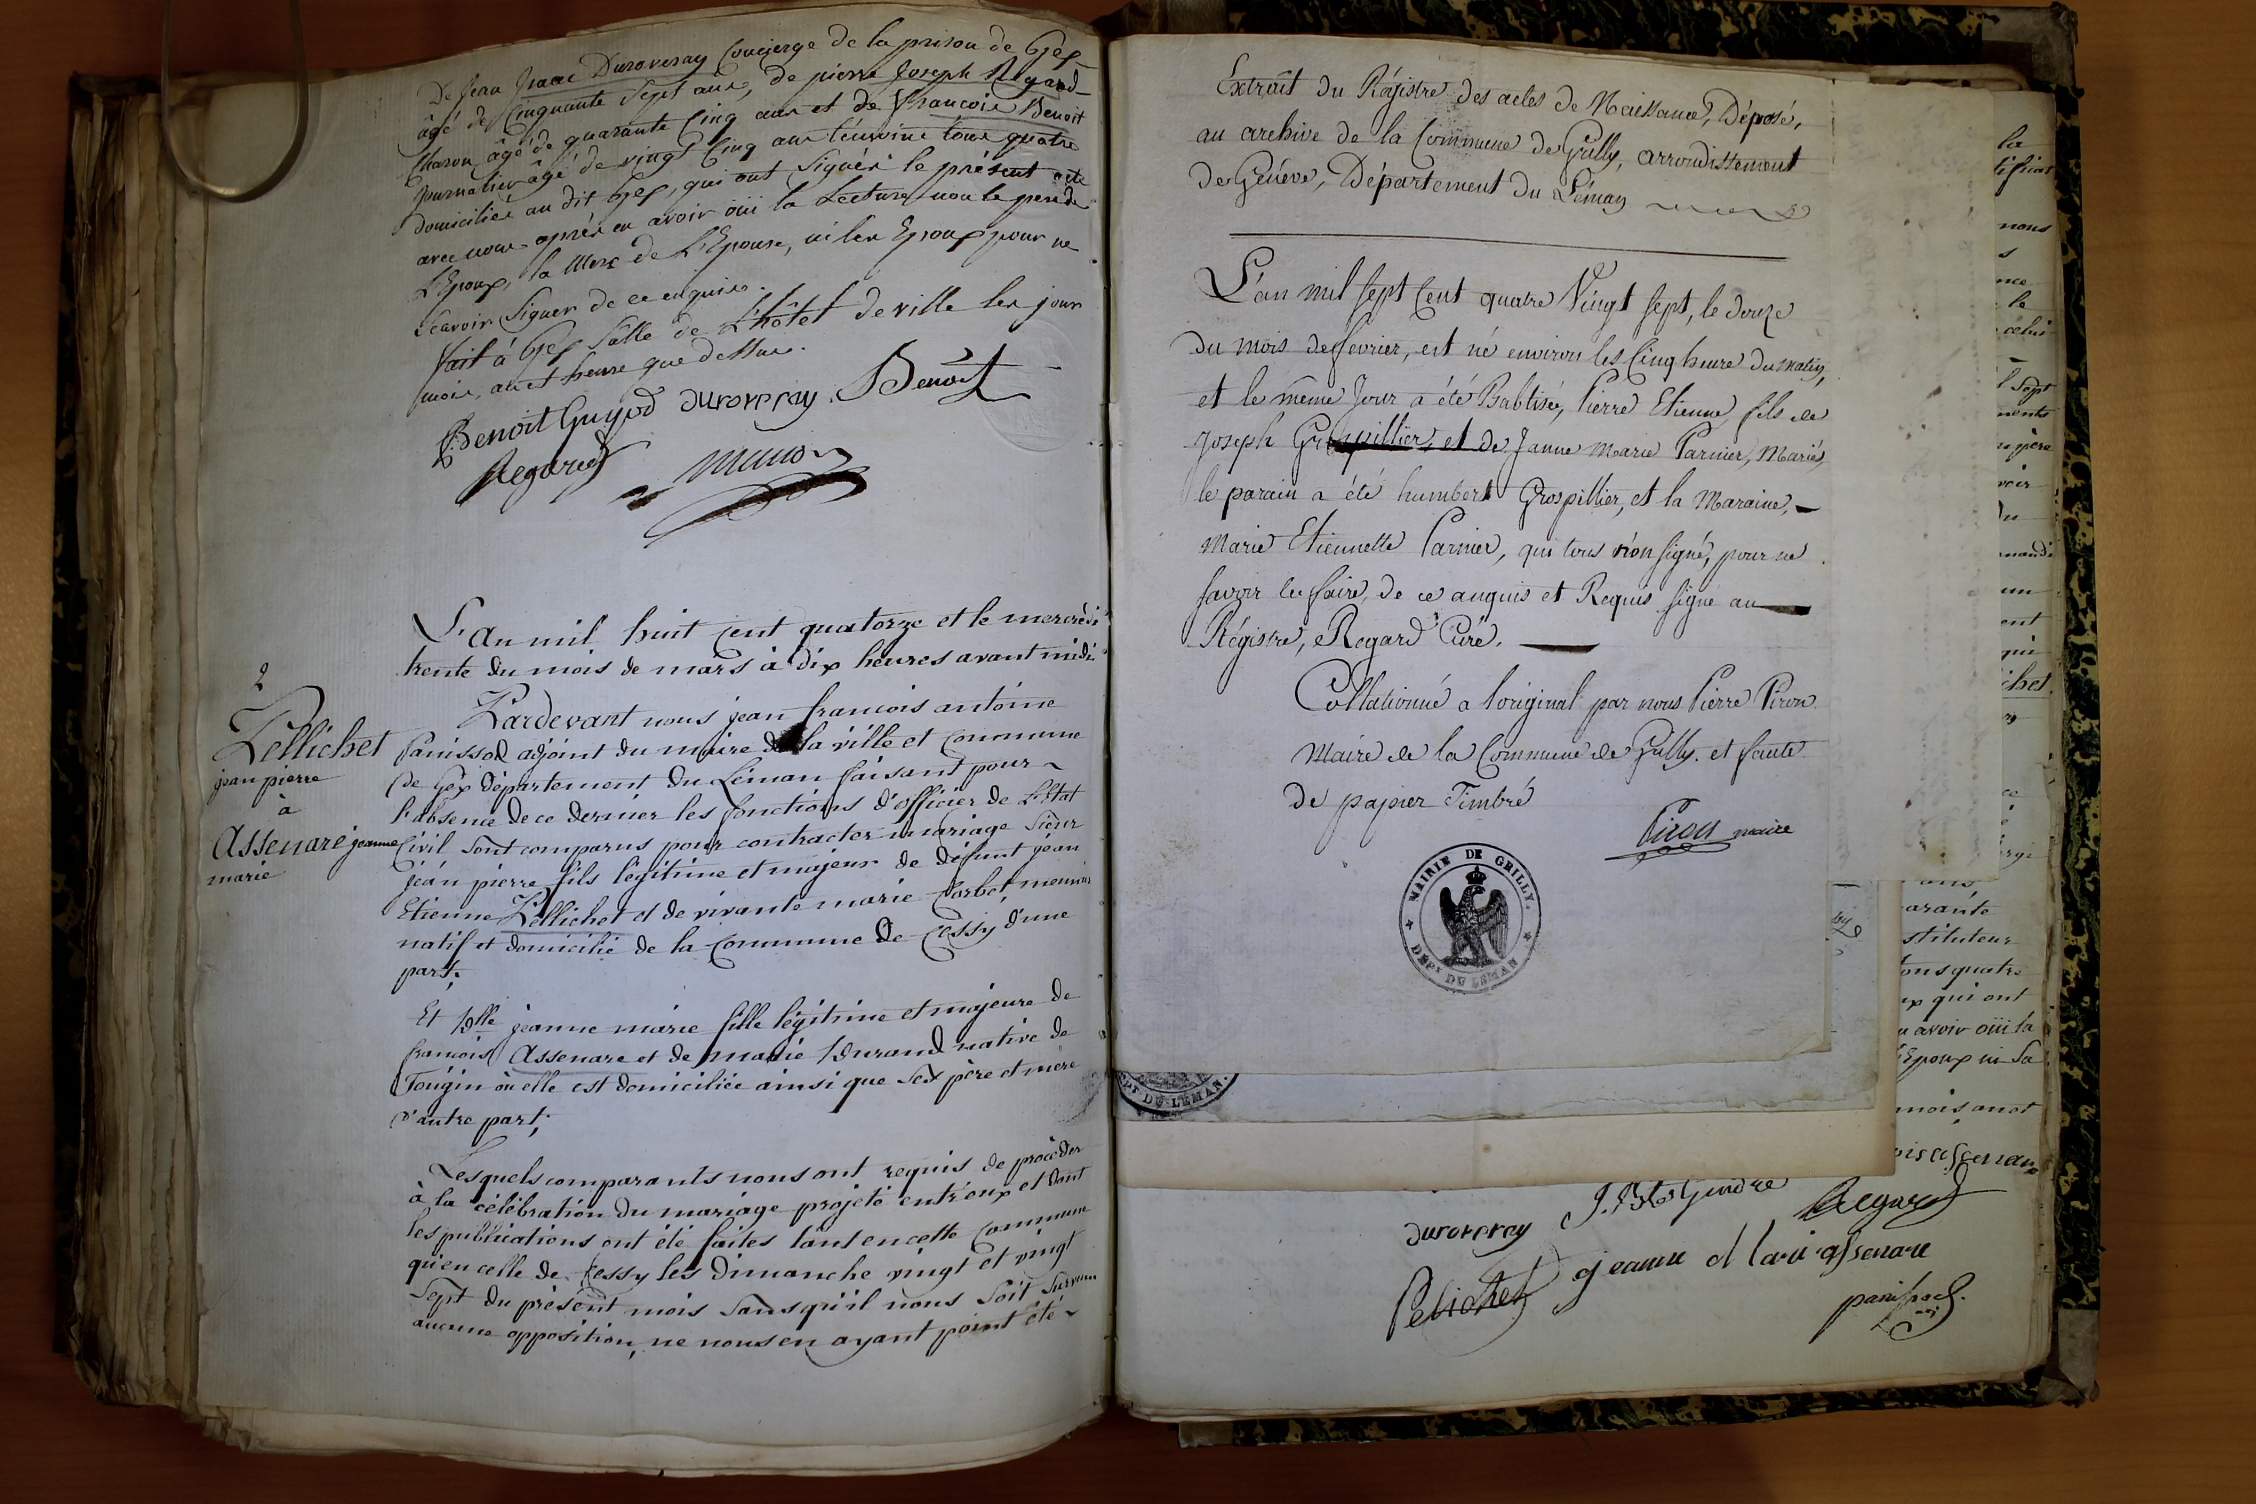 De Jean Isaac Duroveray Concierge de la prison de Gex
âgé de Cinquante Sept ans, de pierre Joseph Regard
Maron âgé de quarante Cinq ans et de François Benoit
Journalier âgé de vingt Cinq ans témoins tous quatre
domiciliés au dit Gex, qui ont Signés le présent acte
avec nous après en avoir öüi la Lecture non le père de
L'Epoux, la Mère de L'Epouse, ni les Epoux pour ne
Scavoir Signer de ce enquis.
Fait à Gex Salle de L'hôtel de ville les jour
mois, an et heure que dessus.
Benoit Guyod duroveray Benoit
Regard
2
Pellichet
jean pierre
à
Assenare jeanne
marie
L'an mil huit cent quatorze et le mercrédi
trente du mois de mars à dix heures avant midi
Pardevant nous jean francois antoine
Panissod adjoint du maire de la ville et Commune
de Gex département du Léman faisant pour
l'absence de ce dernier les fonctions d'officier de L'Etat
Civil sont comparus pour contracter mariage Sieur
jean pierre fils légitime et majeur de défunt jean
Etienne Pellichet et de vivante marie
natif et domicilié de la Commune de Cessy d'une
part;
Et Dlle jeanne marie fille légitime et majeure de
francois Assenare et de marie Durand native de
Tougin où elle est domiciliée ainsi que Ses père et mère
d'autre part;
Lesquels comparants nous ont requis de procéder
à la célébration du mariage projeté entr'eux et dont
les publications ont été faites tant en cette Commune
qu'en celle de Cessy les Dimanche vingt et vingt
Sept du présent mois Sans qu'il nous Soit Survenu
aucune opposition, ne nous en ayant point été
Extrait du Régistre des actes de Naissance, Déposé,
au archive de la Commune de Grilly, arrondissement
de Genève, Département du Léman
L'an mil sept Cent quatre Vingt sept, le douze
du mois de fevrier, est né environ les Cinq heure du matin,
et le même Jour a été Babtisé, Pierre Etienne fils de
Joseph Grospillier, et de Janne Marie Parnier, Mariés,
le parain a été humbert Grospillier, et la Maraine,
Marie Etiennette Parnier, qui tous n'on signé, pour ne
savoir le faire, de ce anquis et Requis signé au
Régistre, Regard Curé.
Collationné a l'original par nous Pierre Piron
Maire de la Commune de Grilly. et faute
de papier Timbré
Piron maire
MAIRIE DE GRILLY.
DÉPT DU LÉMAN
DU LÉMAN.
la
nous
s
nce
le
celui
l Sept
ments
père
voir
du
un
ent
qui
ichet
ans,
arante
stituteur
ous quatre
ux qui ont
n avoir öüi la
Epoux ni Sa
mois an et
duroveray Regard
Pelichet jeanne Marie assenare